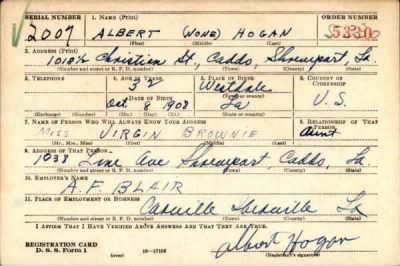 SERIAL NUMBER 1. NAME (Print) ORDER NUMBER
2007 ALBERT (NONE) HOGAN 5330
(First) (Middle) (Last)
2. ADDRESS (Print)
1018½ Christian St., Caddo, Shreveport, La.
(Number and street or R. F. D. number) (Town) (County) (State)
3. TELEPHONE 4. AGE IN YEARS 5. PLACE OF BIRTH 6. COUNTRY OF CITIZENSHIP
32 Westdale
DATE OF BIRTH
Oct 8 1908 La U. S.
(Exchange) (Number) (Mo.) (Day) (Yr.) (State or country)
7. NAME OF PERSON WHO WILL ALWAYS KNOW YOUR ADDRESS 8. RELATIONSHIP OF THAT PERSON
Miss VIRGIN BROWNIE Aunt
(Mr., Mrs., Miss) (First) (Middle) (Last)
9. ADDRESS OF THAT PERSON
1038 Ave Shreveport, Caddo, La.
(Number and street or R. F. D. number) (Town) (County) (State)
10. EMPLOYER'S NAME
A. F. BLAIR
11. PLACE OF EMPLOYMENT OR BUSINESS
La
(Number and street or R. F. D. number) (Town) (County) (State)
I AFFIRM THAT I HAVE VERIFIED ABOVE ANSWERS AND THAT THEY ARE TRUE.
REGISTRATION CARD
D. S. S. Form 1 (over) 16—17105 Albert Hogan
(Registrant's signature)